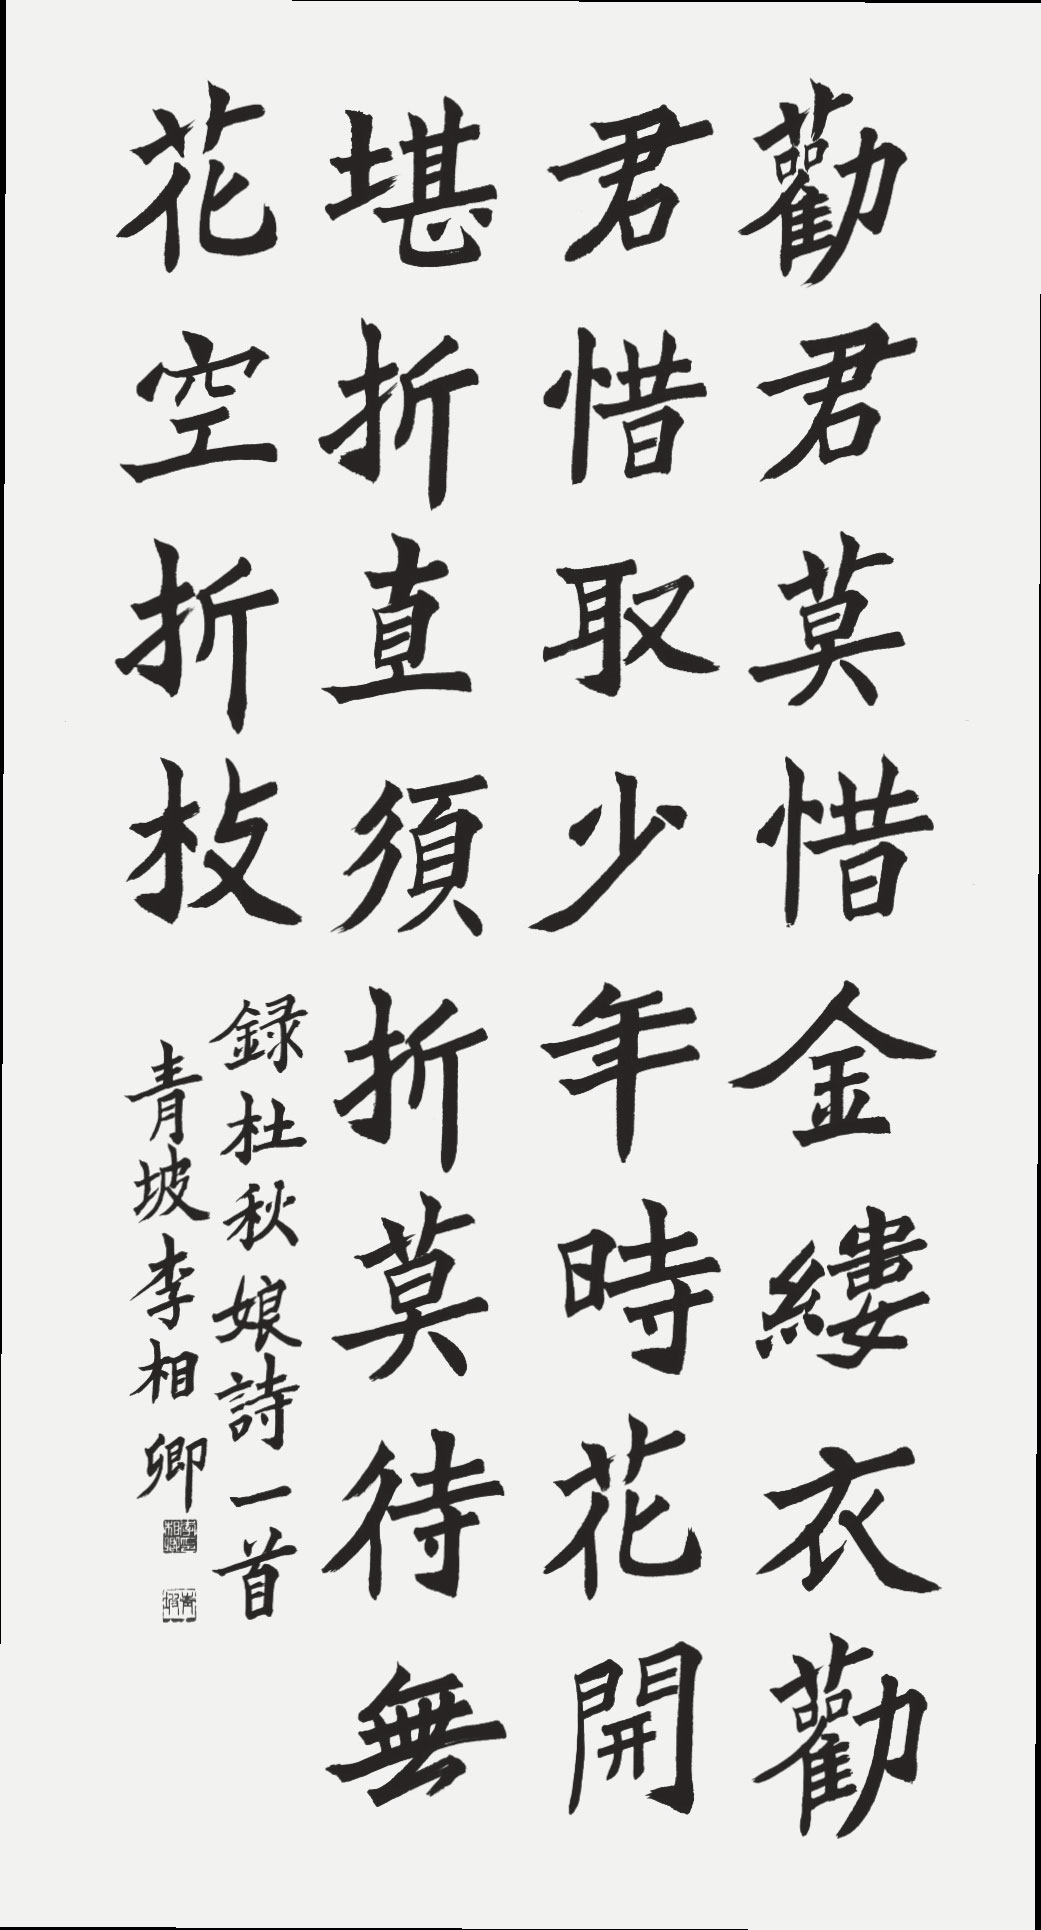 勸君莫惜金縷衣勸
君惜取少年時花開
堪折直須折莫待無
花空折枝
録杜秋娘詩一首
青坡李相卿